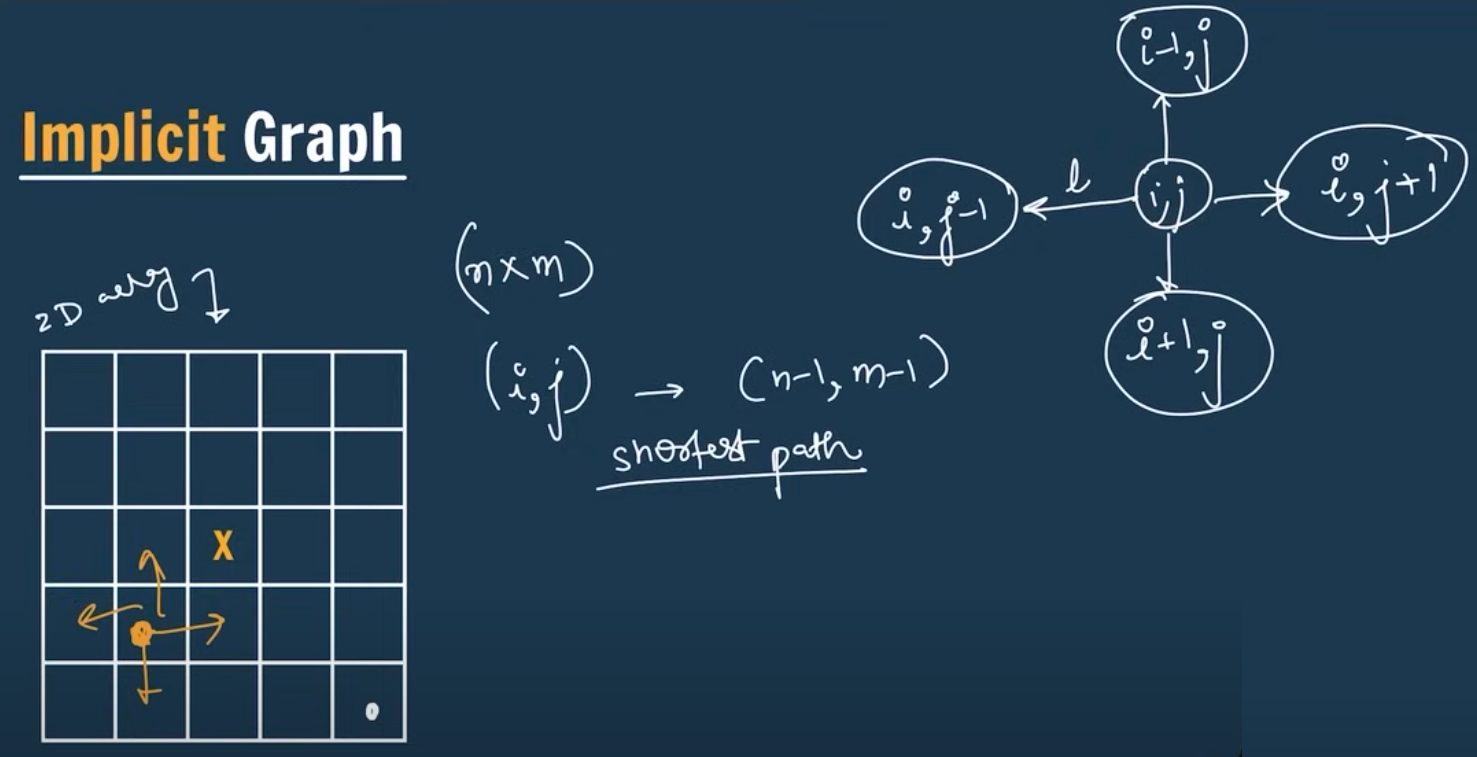 Implicit Graph
2D array
(n×m)
(i,j) → (n-1, m-1)
shortest path
X
i-1,j
i,j-1
l
i,j
i,j+1
i+1,j